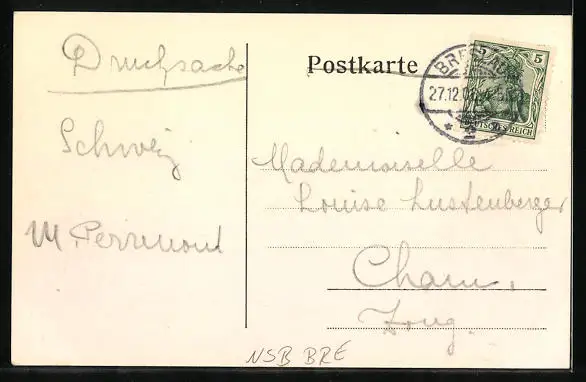 Drucksache
Schweiz
M. Perrenoud
Postkarte
BRESLAU
27.12.08
* 2
5
DEUTSCHES REICH
Mademoiselle
Louise Lustenberger
Cham,
Zoug.
NSB BRE